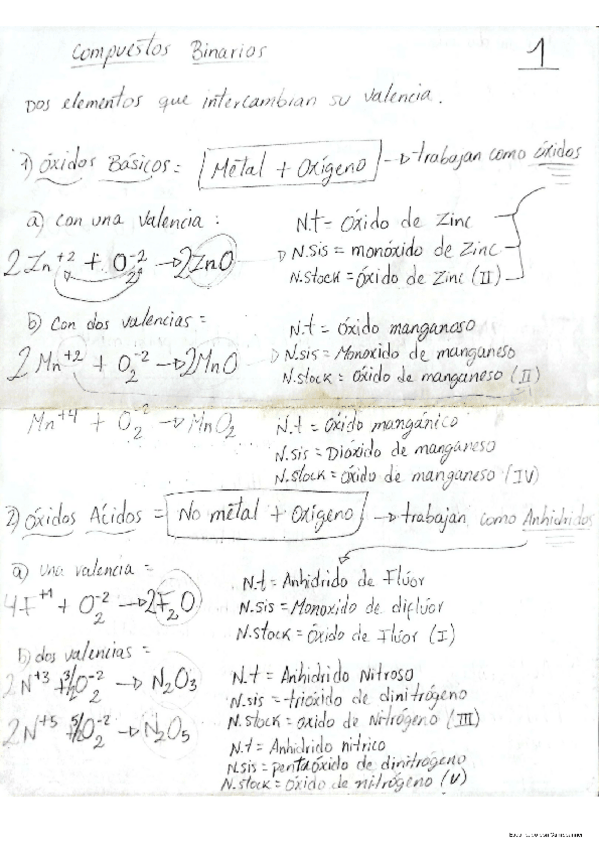 Compuestos Binarios
1
Dos elementos que intercambian su valencia.
1) Óxidos Básicos: Metal + Oxígeno → trabajan como óxidos
a) Con una valencia:
N.t = Óxido de Zinc
2Zn⁺² + O₂⁻² → 2ZnO
N.sis = monóxido de Zinc
N.stock = Óxido de Zinc (II)
b) Con dos valencias =
N.t = óxido manganoso
2Mn⁺² + O₂⁻² → 2MnO
N.sis = Monoxido de manganeso
N.stock = óxido de manganeso (II)
Mn⁺⁴ + O₂⁻² → MnO₂
N.t = óxido mangánico
N.sis = Dióxido de manganeso
N.stock = óxido de manganeso (IV)
2) Óxidos Ácidos = No metal + Oxígeno → trabajan como Anhidridos
a) una valencia =
N.t = Anhidrido de Flúor
4F⁺¹ + O₂⁻² → 2F₂O
N.sis = Monoxido de diflúor
N.stock = Óxido de Flúor (I)
b) dos valencias =
N.t = Anhidrido Nitroso
2N⁺³ + 3/2 O₂⁻² → N₂O₃
N.sis = trióxido de dinitrógeno
N.stock = oxido de Nitrógeno (III)
2N⁺⁵ + 5/2 O₂⁻² → N₂O₅
N.t = Anhidrido nitrico
N.sis = pentaóxido de dinitrógeno
N.stock = óxido de nitrógeno (V)